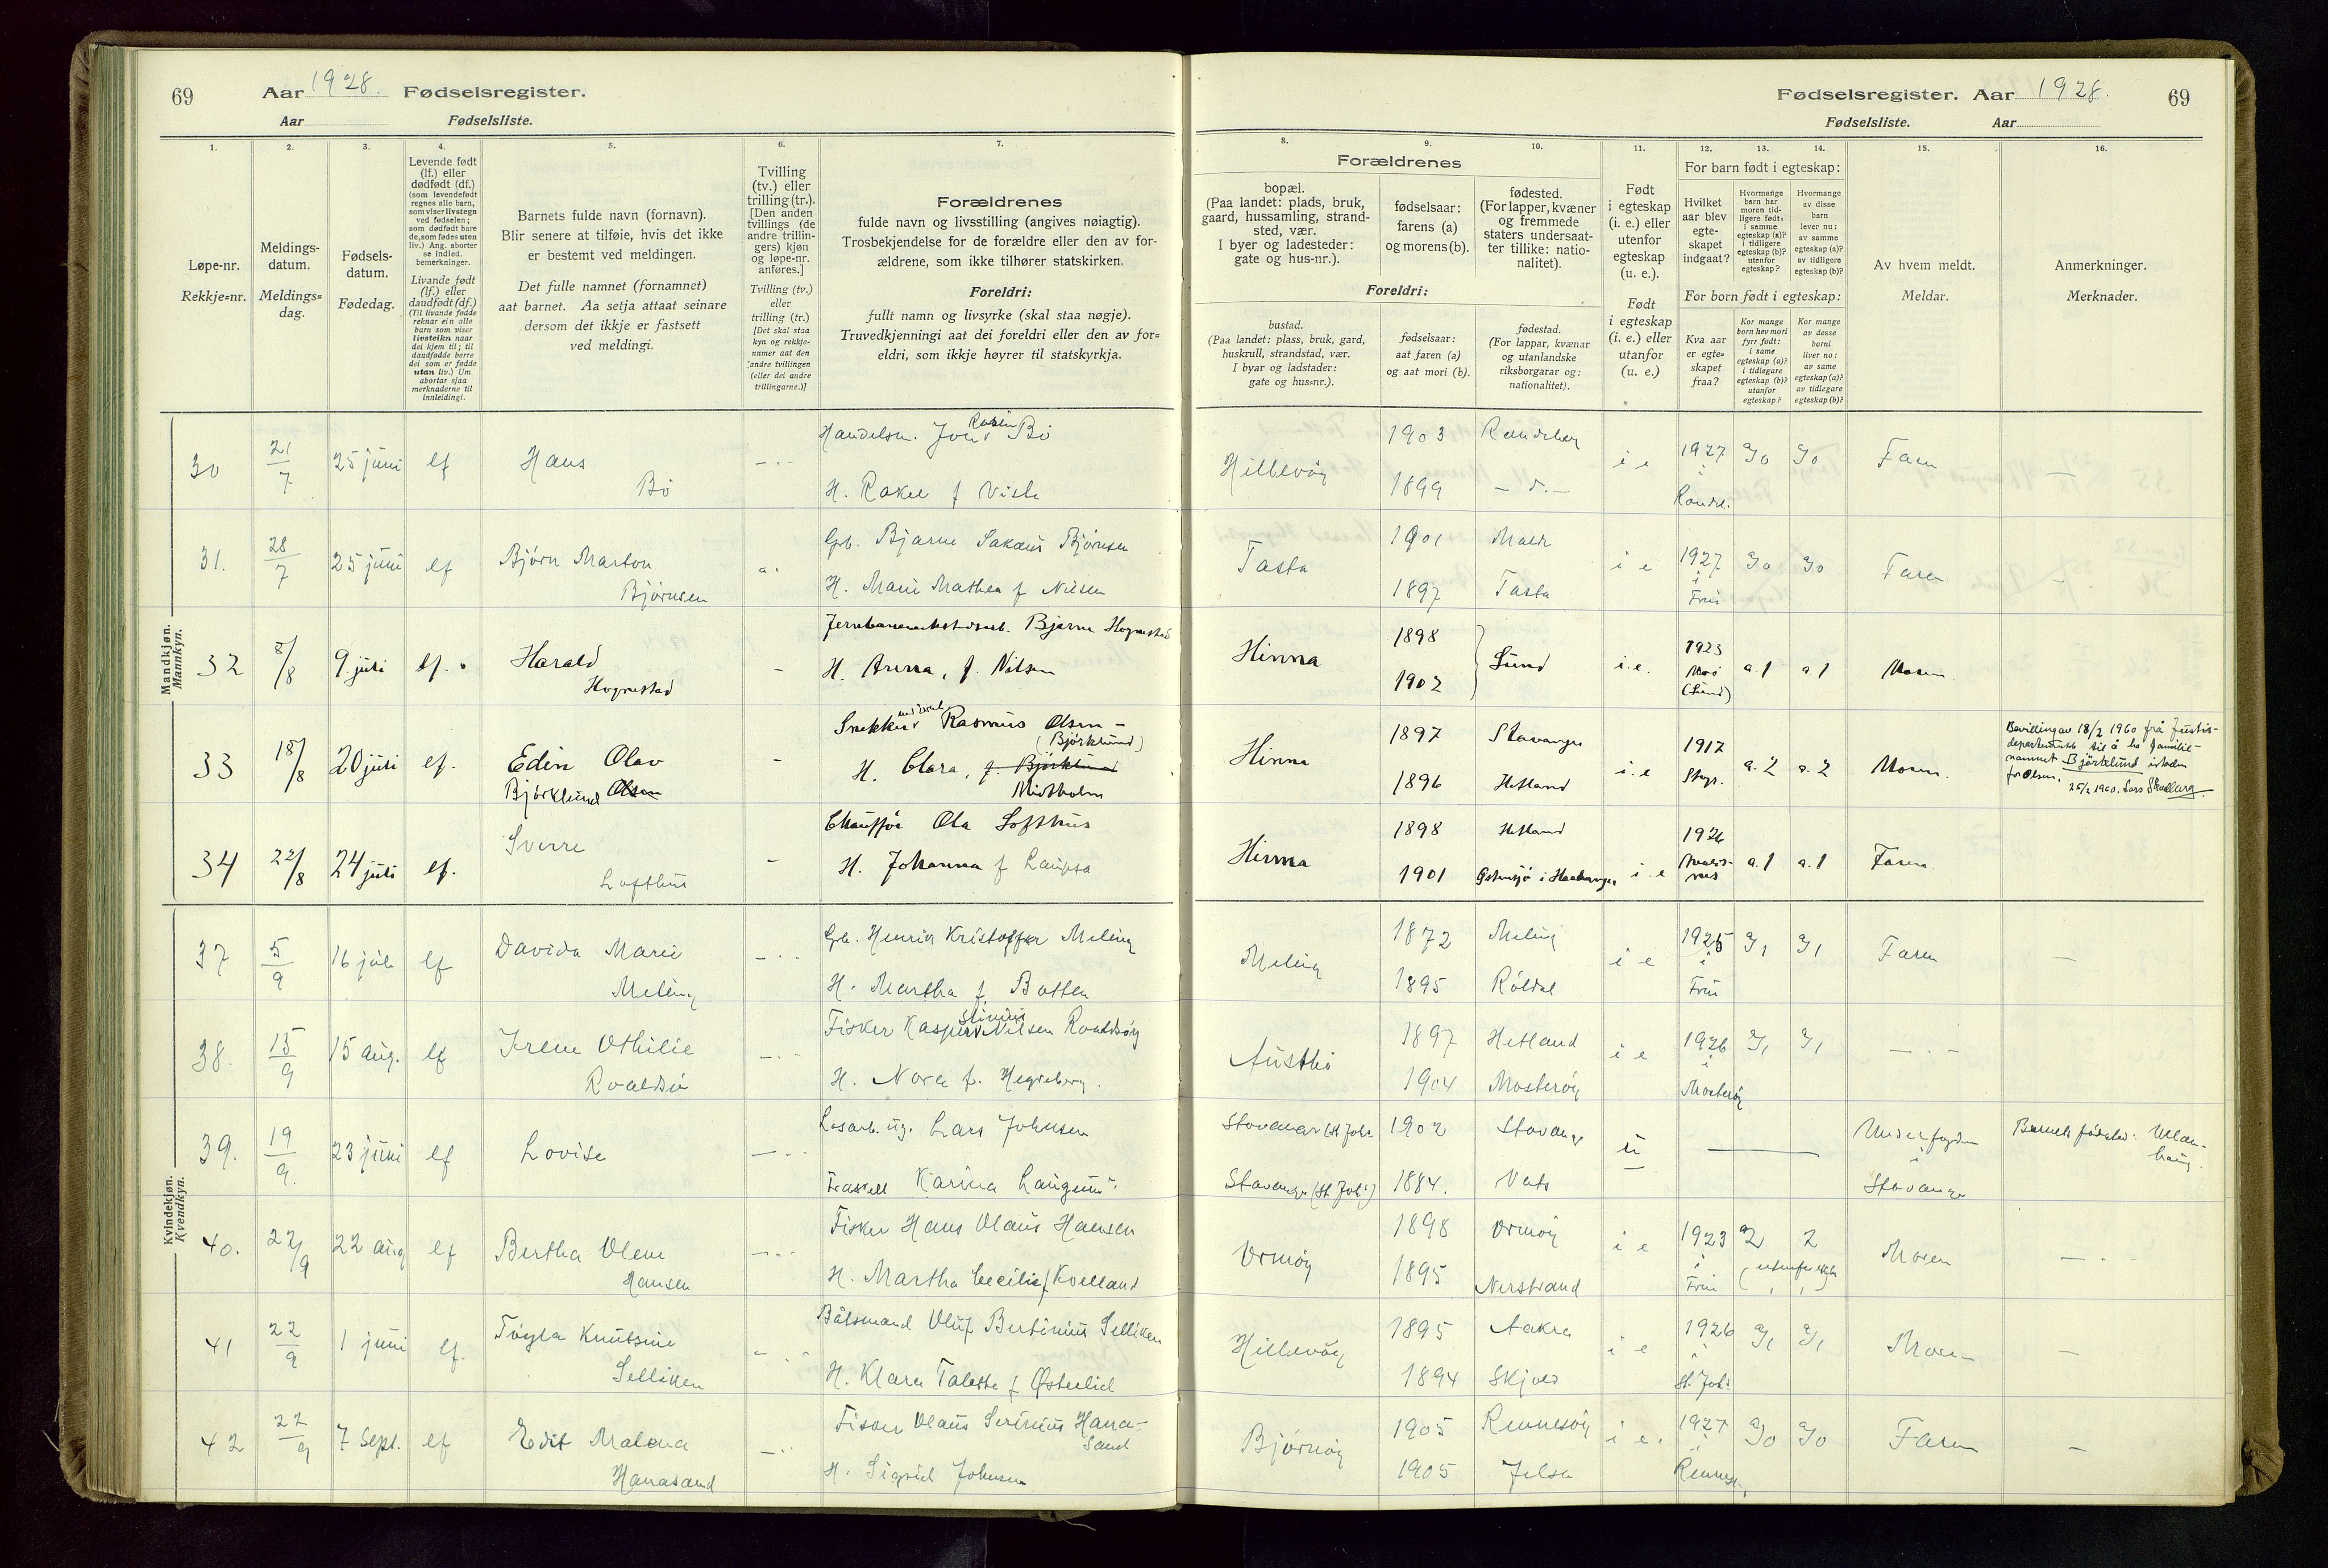 69
Aar 1928. Fødselsregister.
Aar Fødselsliste.
Fødselsregister. Aar 1928.
69
Fødselsliste. Aar
1.
Løpe-nr.
Rekkje-nr.
2.
Meldings-
datum.
Meldings-
dag.
3.
Fødsels-
datum.
Fødedag.
4.
Levende født
(lf.) eller
dødfødt (df.)
(som levendefødt
regnes alle barn,
som viser livstegn
ved fødselen;
som dødfødt bare
de, som fødes uten
liv.) Ang. aborter
se indled.
bemerkninger.
Livande født
(lf.) eller
daudfødt (df.)
(Til livande fødde
reknar ein alle
barn som viser
livsteikn naar
dei kjem til; til
daudfødde berre
dei som er fødde
utan liv.) Um
abortar sjaa
merknaderne til
innleidingi.
5.
Barnets fulde navn (fornavn).
Blir senere at tilføie, hvis det ikke
er bestemt ved meldingen.
Det fulle namnet (fornamnet)
aat barnet. Aa setja attaat seinare
dersom det ikkje er fastsett
ved meldingi.
6.
Tvilling
(tv.) eller
trilling (tr.).
[Den anden
tvillings (de
andre trillin-
gers) kjøn
og løpe-nr.
anføres.]
Tvilling (tv.)
eller
trilling (tr.)
[Det skal staa
kyn og rekkje-
numer aat den
andre tvillingen
(eller dei andre
trillingarne.)]
7.
Forældrenes
fulde navn og livsstilling (angives nøiagtig).
Trosbekjendelse for de forældre eller den av for-
ældrene, som ikke tilhører statskirken.
Foreldri:
fullt namn og livsyrke (skal staa nøgje).
Truvedkjenningi aat dei foreldri eller den av for-
eldri, som ikkje høyrer til statskyrkja.
8.
Forældrenes
bopæl.
(Paa landet: plads, bruk,
gaard, hussamling, strand-
sted, vær.
I byer og ladesteder:
gate og hus-nr.).
Foreldri:
bustad.
(Paa landet: plass, bruk, gard,
huskrull, strandstad, vær.
I byar og ladstader:
gate og hus-nr.).
9.
fødselsaar:
farens (a)
og morens (b).
fødselsaar:
aat faren (a)
og aat mori (b).
10.
fødested.
(For lapper, kvæner
og fremmede
staters undersaat-
ter tillike: natio-
nalitet).
fødestad.
(For lappar, kvænar
og utanlandske
riksborgarar og:
nationalitet).
11.
Født
i egteskap
(i. e.) eller
utenfor
egteskap
(u. e.).
Født
i egteskap
(i. e.) eller
utanfor
(u. e.)
12. 13. 14.
For barn født i egteskap:
Hvilket
aar blev
egte-
skapet
indgaat?
Hvormange
barn har
moren tid-
ligere født:
i samme
egteskap (a)?
i tidligere
egteskap (b)?
utenfor
egteskap?
Hvormange
av disse
barn
lever nu:
av samme
egteskap (a)?
av tidligere
egteskap (b)?
For born født i egteskap:
Kva aar
er egte-
skapet
fraa?
Kor mange
born hev mori
fyrr født:
i same
egteskap (a)?
i tidlegare
egteskap (b)?
utanfor
egteskap?
Kor mange
av desse
borni
liver no:
av same
egteskap (a)?
av tidlegare
egteskap (b)?
15.
Av hvem meldt.
Meldar.
16.
Anmerkninger.
Merknader.
Mandkjøn.
Mannkyn.
30 21/7 25 juni lf Hans Bö Handelsm. Jon Rasm Bö
H. Rakel f Viste
Hillevåg 1903 1899 Randeberg i e 1927 i Randb. a/0 a/0 Faren
31. 28/7 25 juni lf Björn Marton Björnsen Grb. Bjarne Sakæus Björnsen
H. Marie Mathea f Nilsen
Tasta 1901 1897 Tasta i e 1927 i Frue a/0 a/0 Faren
32 8/8 9. juli lf. Harald Hognestad Bjarne Hognestad
H. Anna, f. Nilsen
Hinna 1898 1902 Lund i.e. 1923 Moi (Lund) a.1 a.1 Moren.
33 18/8 20 juli lf. Edin Olav Björklund Olsen Snekker Rasmus Olsen (Björklund)
H. Clara, f. Björklund Midtholm
Hinna 1897 Stavanger 1896 Hetland i.e 1917 Stgr. a.2 a.2 Moren.
Bevilling av 18/2 1960 frå Justis-
departementet til å ha familie-
namnet Björklund istaden
for Olsen.
25/2 1960. Lars
34 22/8 24 juli lf. Sverre Lofthus Chaufför Ola Lofthus
H. Johanna f Laupsa
Hinna 1898 Hetland 1901 i Hardanger i.e 1926 a.1 a.1 Faren
Kvindekjøn.
Kvendkyn.
37 5/9 16 juli lf Davida Marie Meling Grb. Henrik Kristoffer Meling
H. Martha f. Botten
Meling 1872 Meling 1895 Röldal i e 1925 i Frue a/1 a/1 Faren
38. 15/9 15 aug. lf Irene Othilie Roaldsö Fisker Kasper Nilsen Roaldsöy
H. Nora f. Hegreberg.
Austbö 1897 Hetland 1904 Mosteröy i e 1926 i Mosteröy a/1 a/1
39. 19/9. 23 juni lf Lovise Lösarb. ug. Lars Johnsen
Karina Langum
Stavanger (St Joh. 1902 Stavanger
Stavanger (St Joh.) 1884. Vats u Stavanger
40. 22/9 22 aug lf Bertha Olene Hansen Fisker Hans Olaus Hansen
H. Martha Cecilie f Kvelland
Ormöy 1898 Ormöy 1895 Nerstrand i e 1923 i Frue 2 2 Moren
41 22/9 1 juni lf. Töyla Knutsine Selliken Båtsmand Oluf Bertinius Selliken
H. Klara Talette f Østerlid
Hillevåg 1895 Aakra 1894 Skjold i e 1926 i St. Joh. a/1 a/1 Moren
42 22/9 7 Sept. lf Edit Malena Hanasand Fisker Olaus Serinius Hana-
sand
H. Sigrid Johnsen
Bjørnöy 1905 Rennesöy 1905 Jelsa i e. 1927 i Rennes. a/0 a/0 Faren